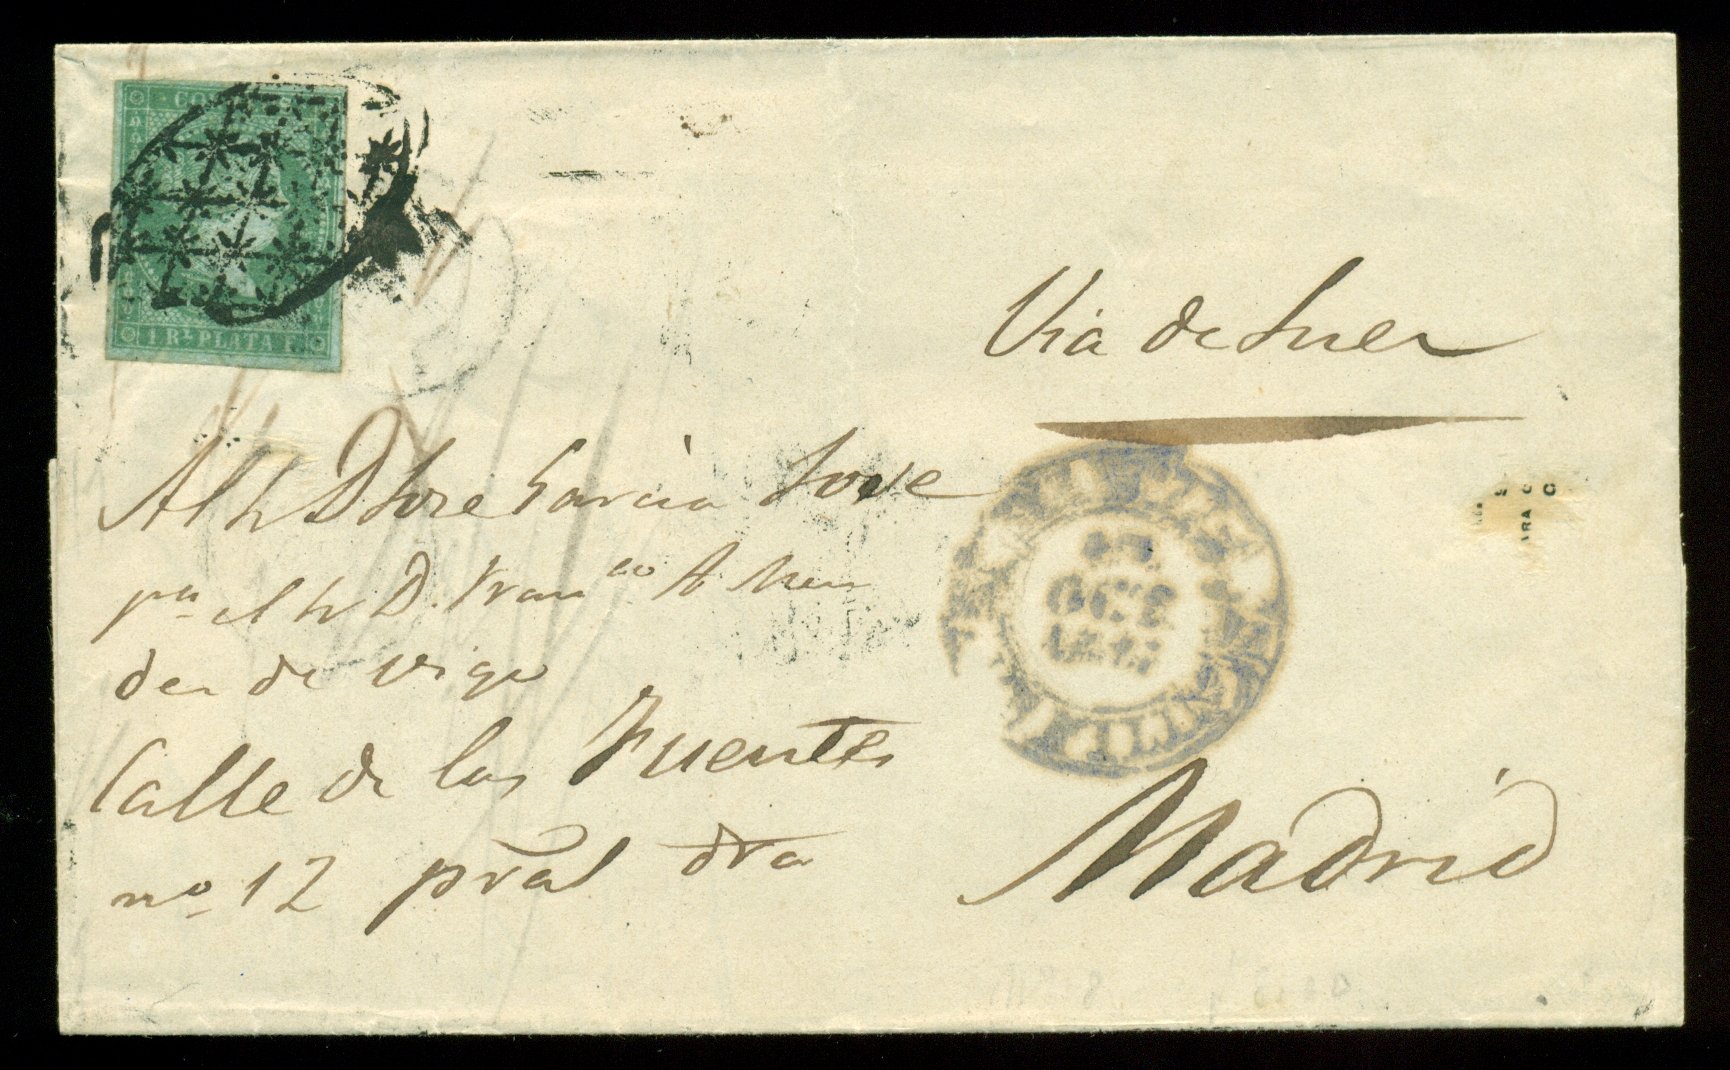 CO
1 Rl. PLATA F.
Via de Suez
Al Sr D Jose Garcia Jove
pa el Sr D. Franco A Men
dez de Vigo
Calle de las Fuentes
no 12 pral dra
Madrid
RA C